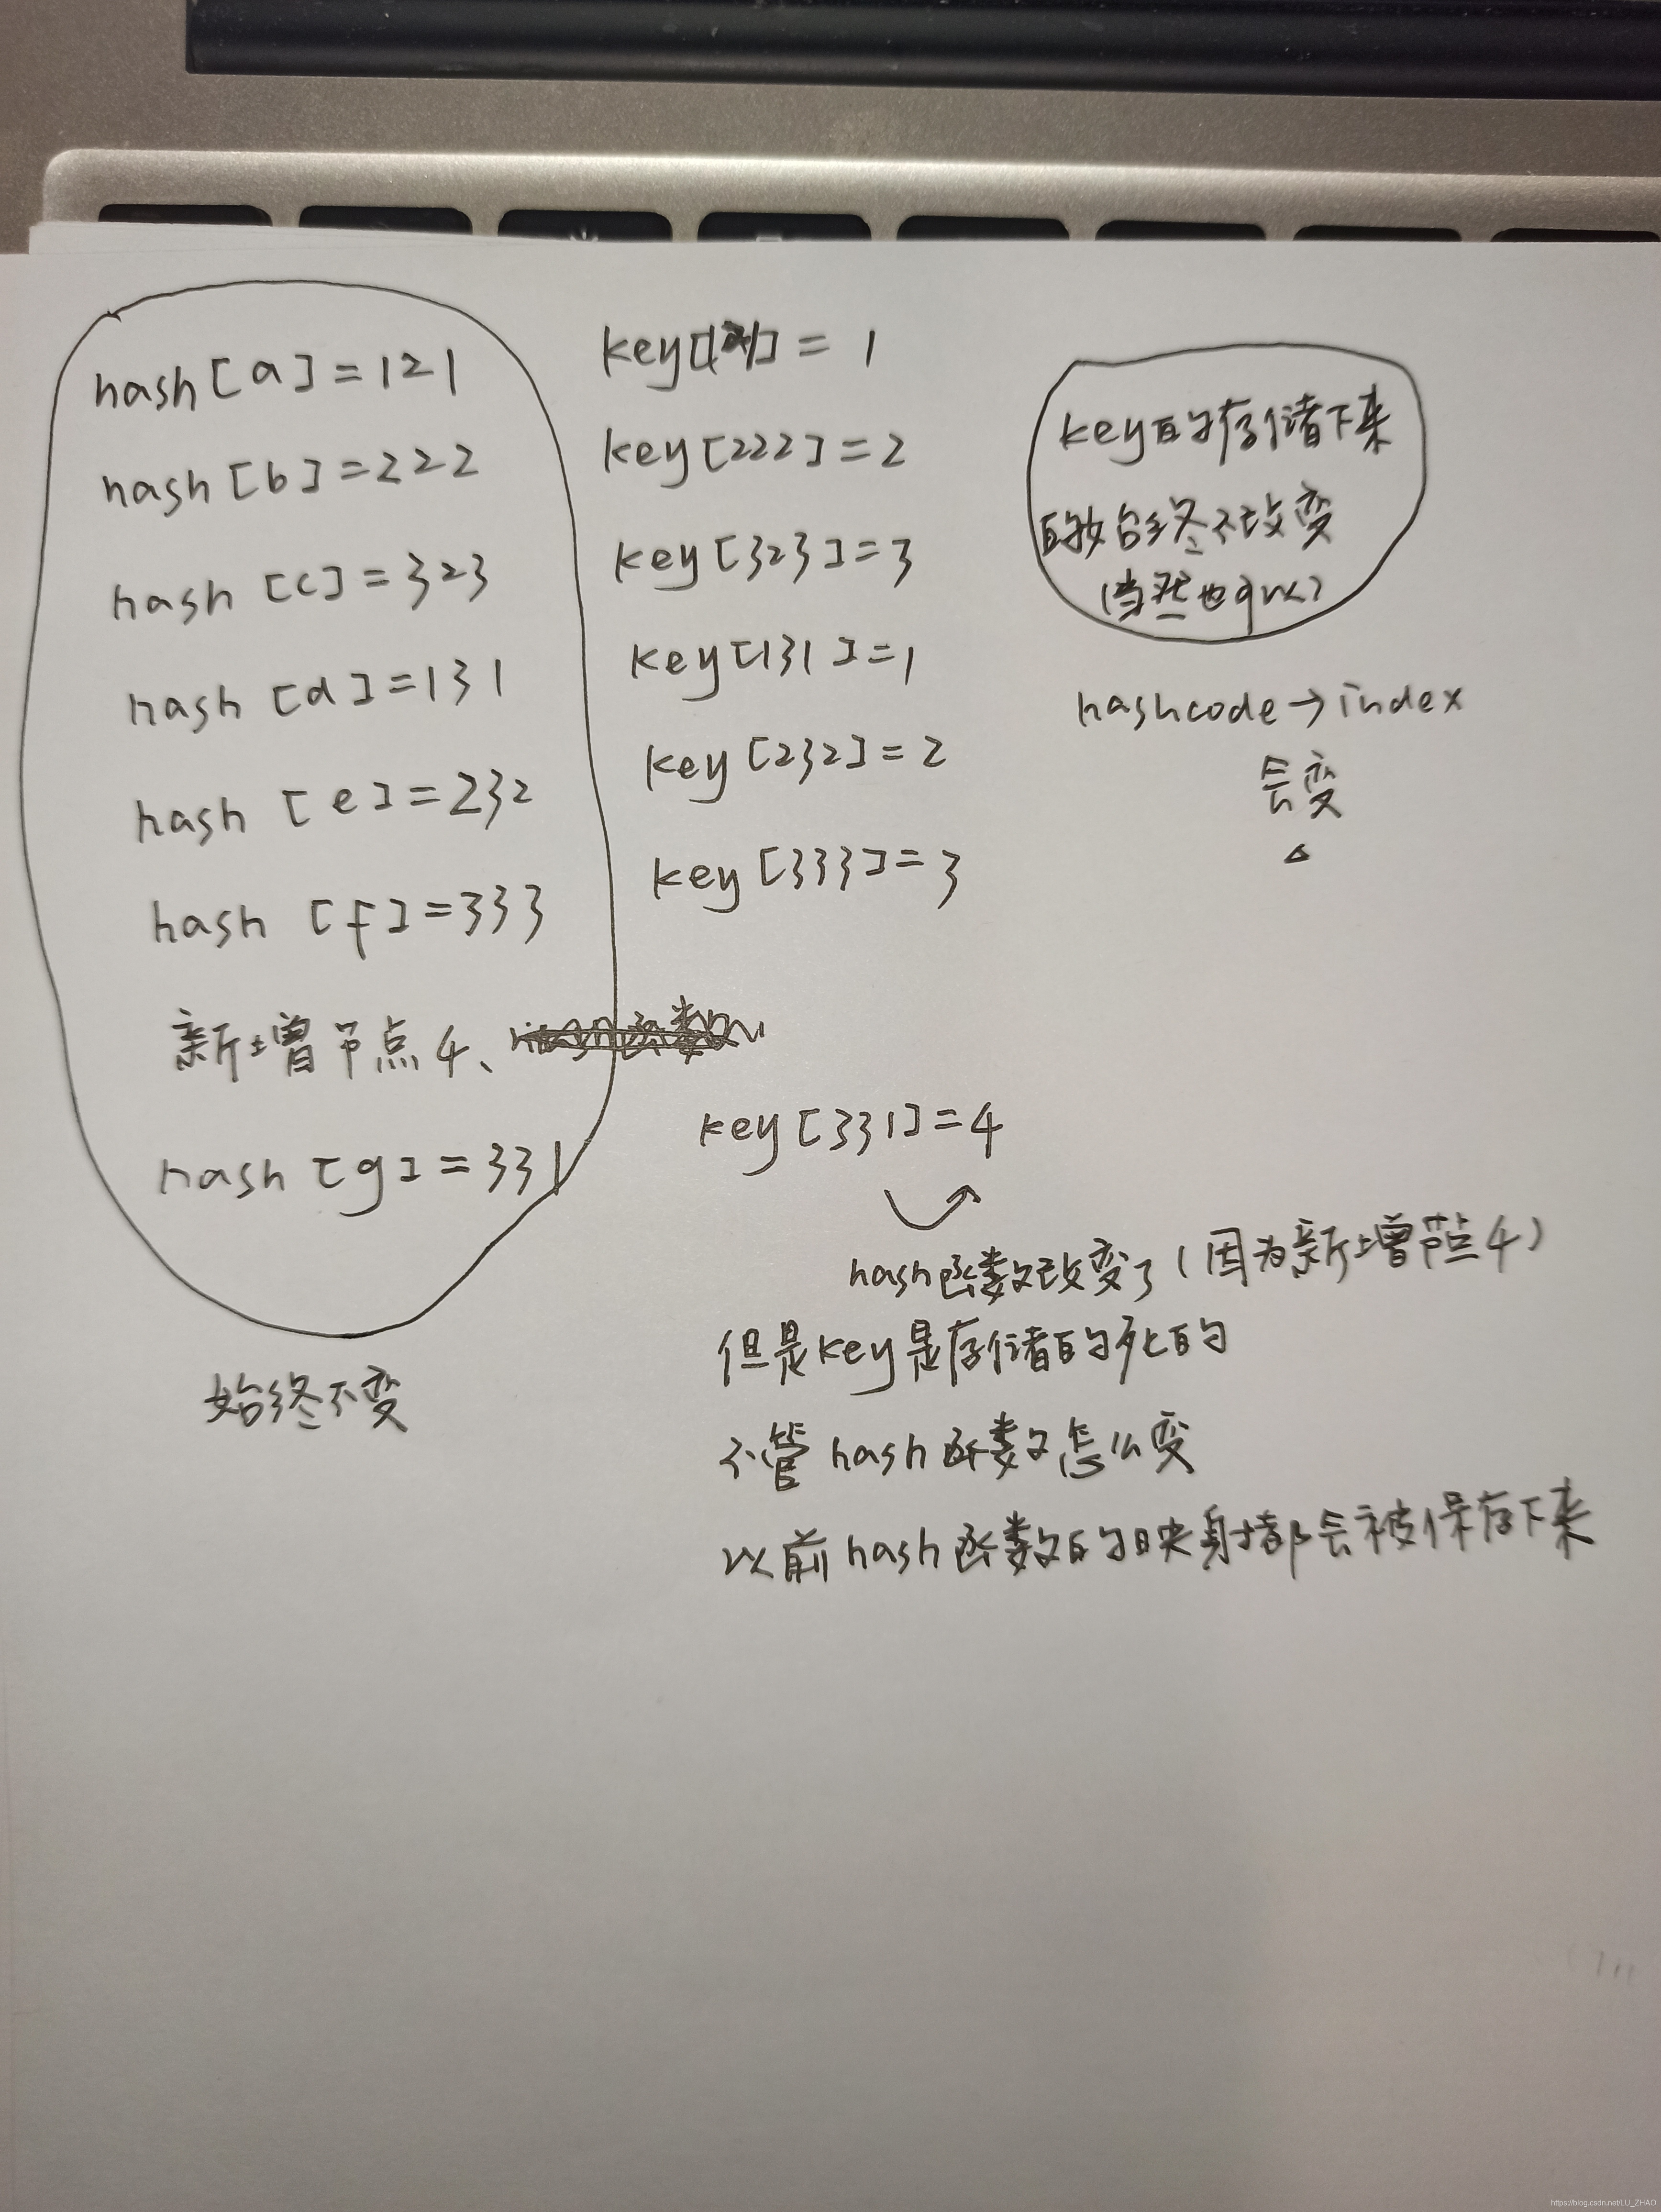 hash[a]=121
hash[b]=222
hash[c]=323
hash[d]=131
hash[e]=232
hash[f]=333
新增节点4、
hash[g]=331
始终不变
key[121]=1
key[222]=2
key[323]=3
key[131]=1
key[232]=2
key[333]=3
key[331]=4
hash函数改变了(因为新增节点4)
但是key是存储的死的
不管hash函数怎么变
以前hash函数的映射都会被保存下来
key的存储下来
的始终不改变
(当然也可以)
hashcode→index
会变
https://blog.csdn.net/LU_ZHAO